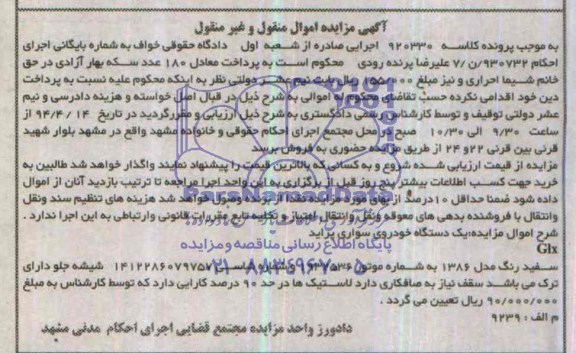 آگهی مزایده اموال منقول و غیر منقول
به موجب پرونده کلاسه ۹۲۰۳۳۰ اجرایی صادره از شعبه اول دادگاه حقوقی خواف به شماره بایگانی اجرای
احکام ۹۳۰۷۳۲/ن/۷ علیرضا پرنده رودی محکوم است به پرداخت معادل ۱۸۰ عدد سکه بهار آزادی در حق
خانم شیما احراری و نیز مبلغ ریال بابت نیم عشر دولتی نظر به اینکه محکوم علیه نسبت به پرداخت
دین خود اقدامی نکرده حسب تقاضای محکوم له اموالی به شرح ذیل در قبال اصل خواسته و هزینه دادرسی و نیم
عشر دولتی توقیف و توسط کارشناس رسمی دادگستری به شرح ذیل ارزیابی و مقرر گردید در تاریخ ۹۴/۴/۱۴ از
ساعت ۹/۳۰ الی ۱۰/۳۰ صبح در محل مجتمع اجرای احکام حقوقی و خانواده مشهد واقع در مشهد بلوار شهید
قرنی بین قرنی ۲۲و ۲۴ از طریق مزایده حضوری به فروش برسد
مزایده از قیمت ارزیابی شده شروع و به کسانی که بالاترین قیمت را پیشنهاد نمایند واگذار خواهد شد طالبین به
خرید جهت کسب اطلاعات بیشتر پنج روز قبل از برگزاری به این واحد اجرا مراجعه تا ترتیب بازدید آنان از اموال
داده شود ضمنا حداقل ۱۰درصد از بهای مورد مزایده نقدا از برنده وصول خواهد شد هزینه های تنظیم سند ونقل
وانتقال با فروشنده بدهی های معوقه ونقل وانتقال امتیاز و تخلیه تابع مقررات قانونی وارتباطی به این اجرا ندارد .
شرح اموال مزایده:یک دستگاه خودروی سواری پراید
پایگاه اطلاع رسانی مناقصه و مزایده
Glx
سفید رنگ مدل ۱۳۸۶ به شماره موتور شماره شاسی ۱۴۱۲۲۸۶۰۷۹۷۵۷ شیشه جلو دارای
۰۲۱-۸۸۳۴۹۶۷۰-۵
ترک می باشد سقف نیاز به صافکاری دارد لاستیک ها در حد ۹۰ درصد کارایی دارد که توسط کارشناس به مبلغ
۹۰/۰۰۰/۰۰۰ ریال تعیین می گردد .
م الف : ۹۲۳۹
دادورز واحد مزایده مجتمع قضایی اجرای احکام مدنی مشهد